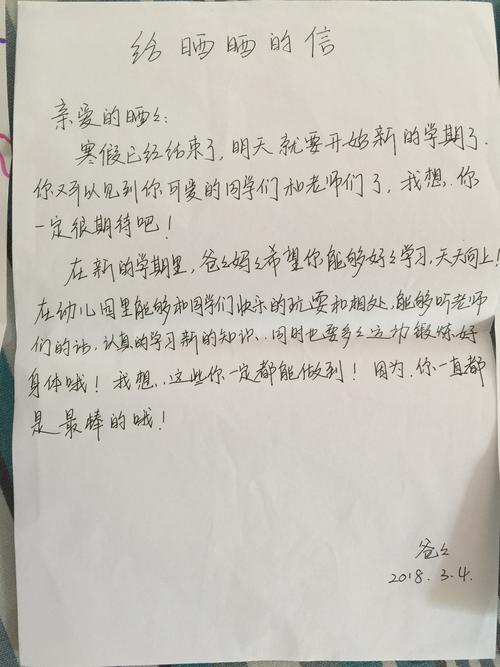 给晒晒的信
亲爱的晒々:
寒假已经结束了,明天就要开始新的学期了.
你又可以见到你可爱的同学们和老师们了,我想.你
一定很期待吧!
在新的学期里,爸々妈々希望你能够好々学习,天天向上!
在幼儿园里能够和同学们快乐的玩耍和相处,能够听老师
们的话.认真的学习新的知识、同时也要多々运动锻炼好
身体哦!我想..这些你一定都能做到!因为.你一直都
是最棒的哦!
爸々
2018.3.4.